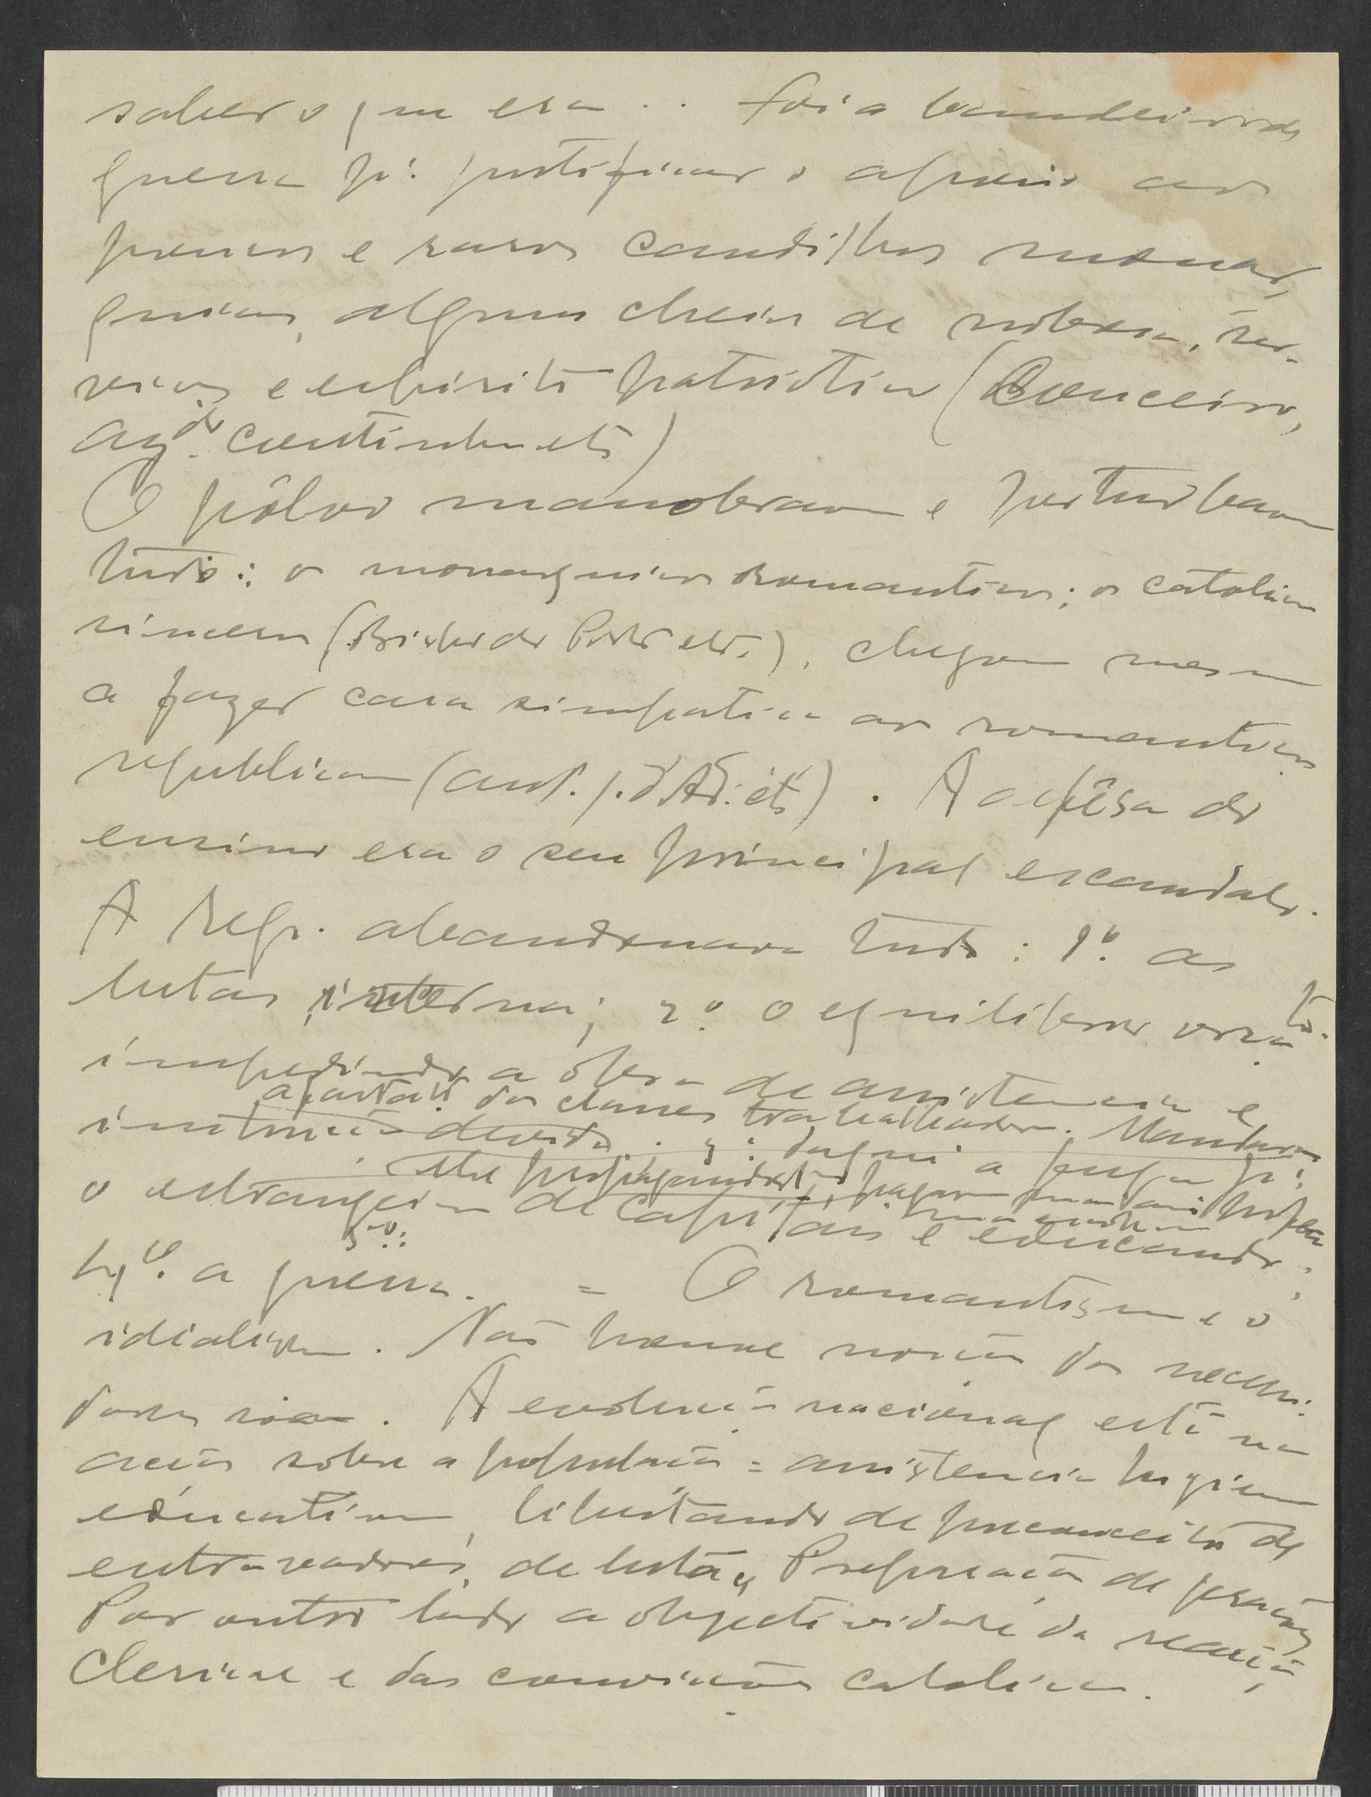 saber o que era .. foi a bandeira da
guerra p.ª justificar o apoio aos
poucos e raros caudilhos monar-
quicos, alguns cheios de nobreza, ser-
viços e espirito patriotico (Couceiro,
Az.do Coutinho etc)
O pôlvo manobrava e perturbava
tudo: os monarquicos romanticos; os catolicos
sinceros (Bispo do Porto etc.), chegou mesmo
a fazer cara simpatica aos romanticos
republicanos (Ant. J. d'Alm. etc). A defêsa do
ensino era o seu principal escandalo.
A Rep. abandonava tudo: 1º as
lutas internas; 2º o equilibrio orçam.to
impedindo a obra de assistencia e
afastou das classes trabalhadoras.
instrução devida. 3º daqui a fuga p.ª
o estrangeiro de capitais e educandos;
4º a guerra. = O romantismo e o
idialismo. Não houve noção das necessi-
dades reais. A evolução nacional está na
acção sobre a população = assistencia higiene
educativa, libertando de preconceitos de
entravadores, de lutas. Preparação de gerações
Por outro lado a objectividade da reacção
clerical e das convicções catolicas.